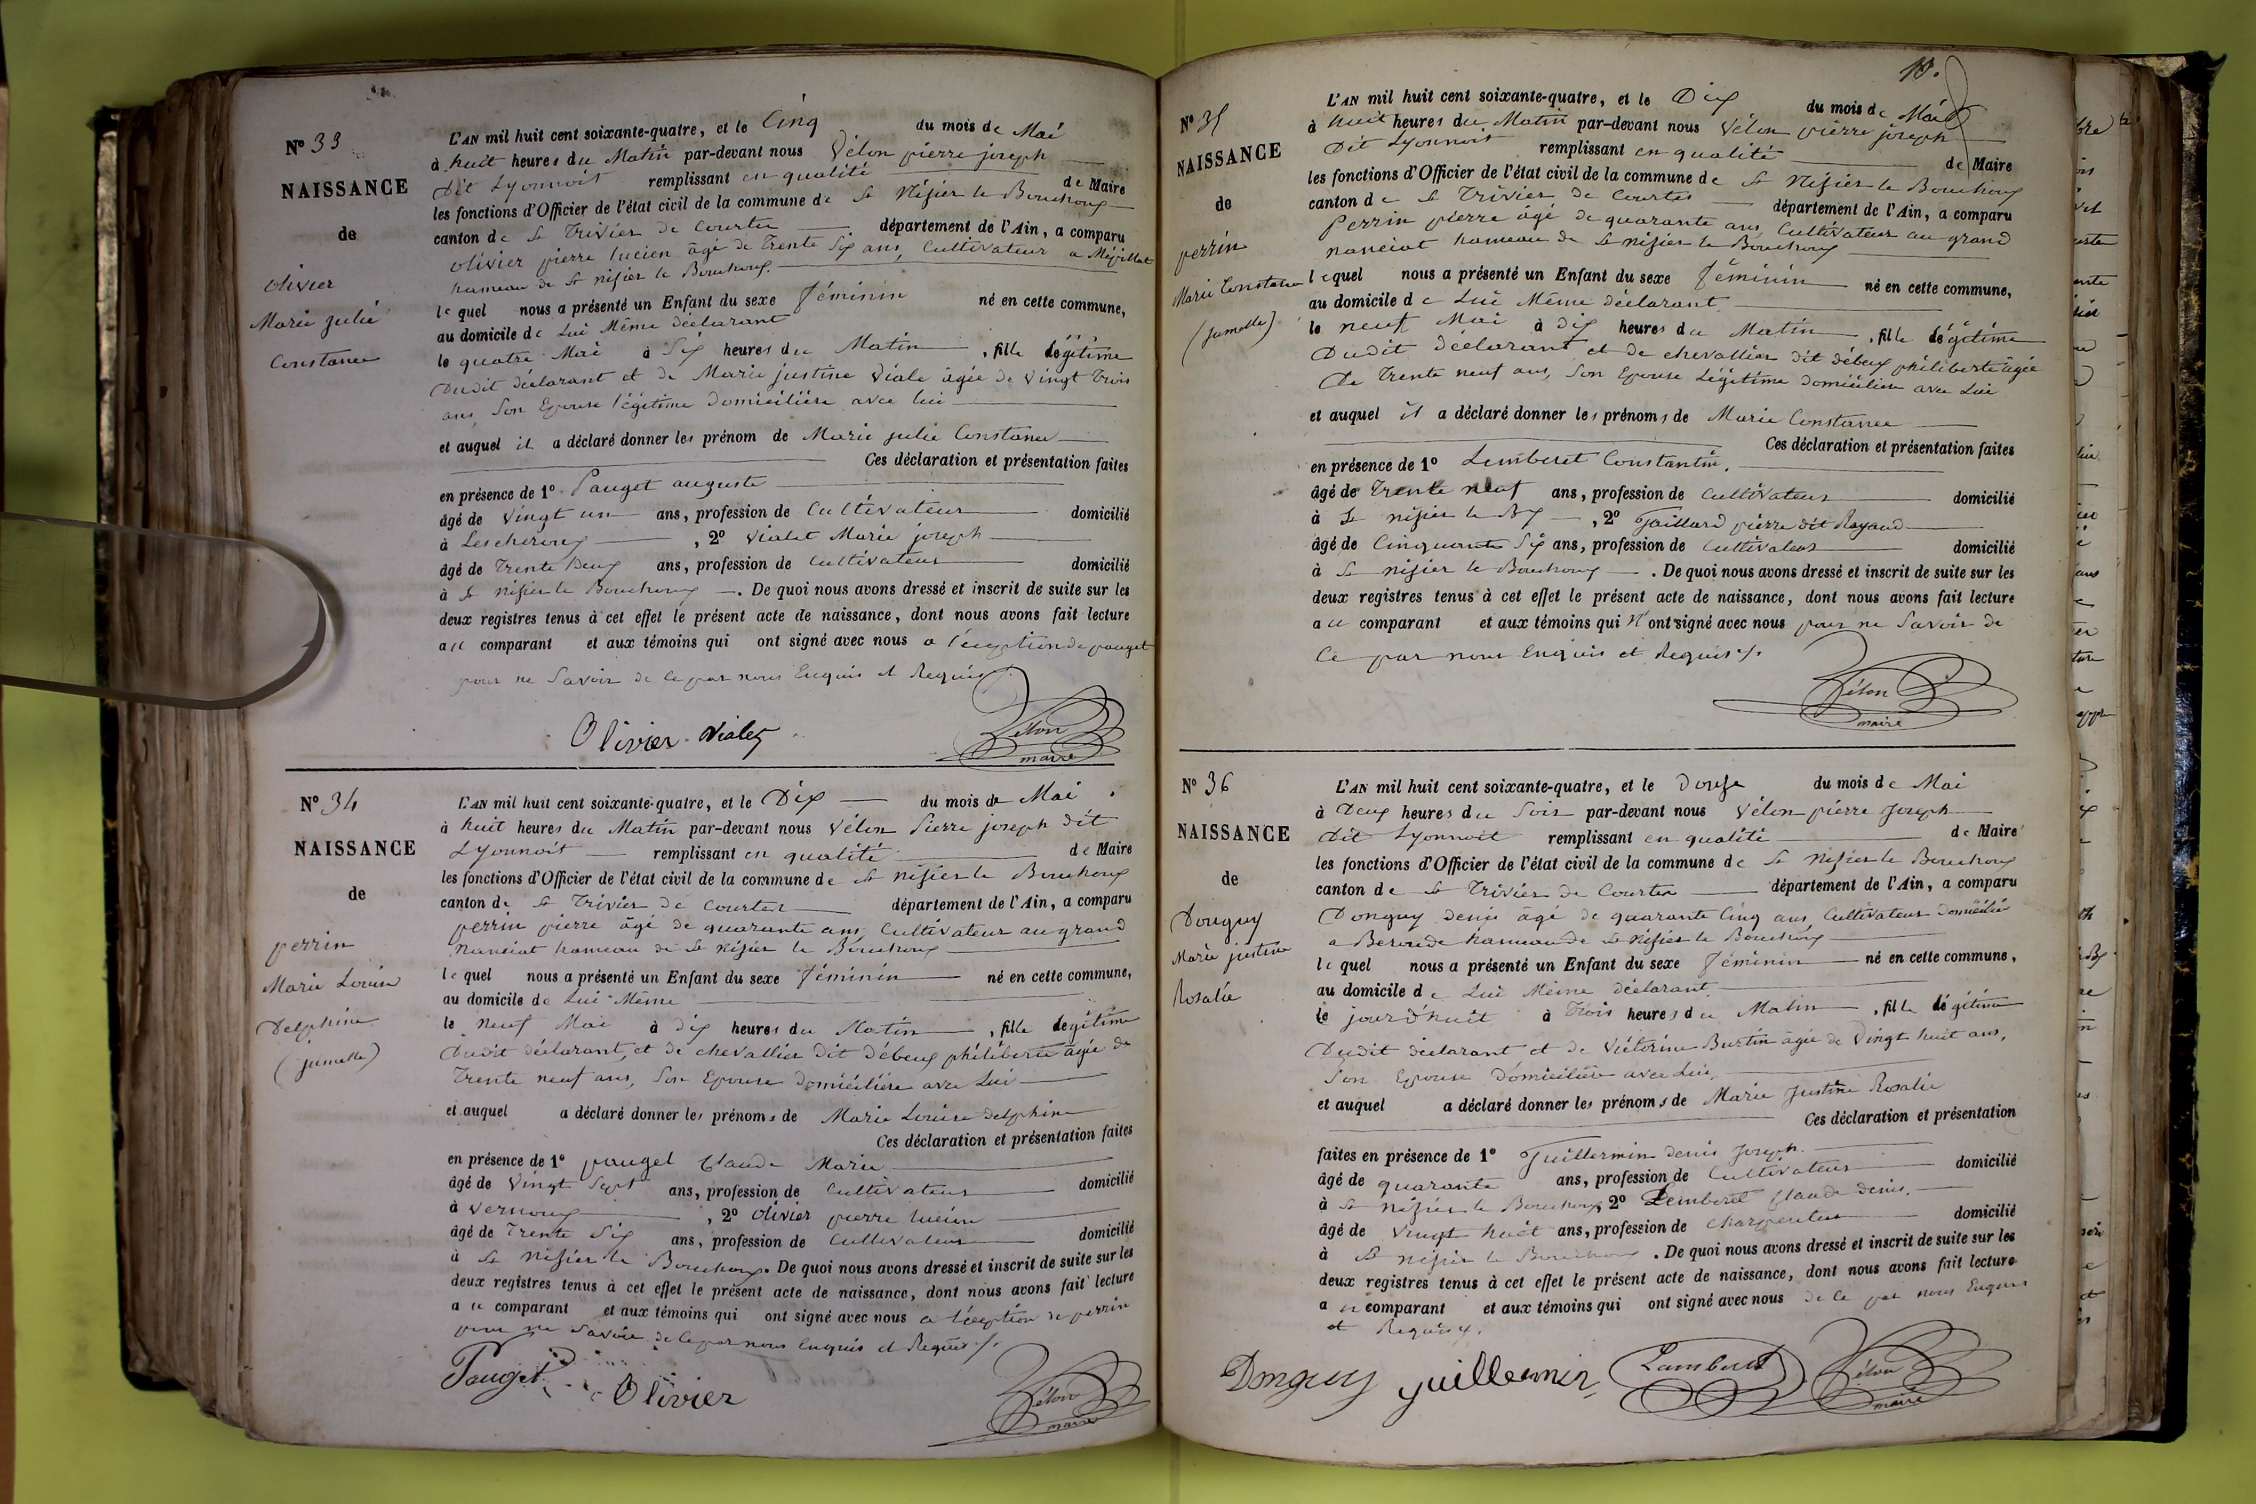 N° 33
NAISSANCE
de
olivier
Marie julie
Constance
L'AN mil huit cent soixante-quatre, et le Cinq du mois de Mai
à huit heures du Matin par-devant nous Vélon pierre joseph
Dit Lyonnoit remplissant en qualité de Maire
les fonctions d'Officier de l'état civil de la commune de St Nisier le Bouchoux
canton de St Trivier de Courtes département de l'Ain, a comparu
olivier pierre lucien âgé de trente Six ans, Cultivateur a Mépillat
hameau de St nisier le Bouchoux
lequel nous a présenté un Enfant du sexe féminin né en cette commune,
au domicile de Lui Même déclarant
le quatre Mai à Six heures du Matin, fille légitime
Dudit déclarant et de Marie justine Viale âgée de Vingt Trois
ans, Son Epouse légitime Domiciliére avec lui
et auquel il a déclaré donner les prénom de Marie julie Constance
Ces déclaration et présentation faites
en présence de 1° Pauget auguste
âgé de Vingt un ans, profession de Cultivateur domicilié
à Lescheroux, 2° Vialet Marie joseph
âgé de Trente Deux ans, profession de Cultivateur domicilié
à St nisier le Bouchoux. De quoi nous avons dressé et inscrit de suite sur les
deux registres tenus à cet effet le présent acte de naissance, dont nous avons fait lecture
au comparant et aux témoins qui ont signé avec nous a l'éxeption de pauget
pour ne Savoir de ce par nous Enquis et Requis
Olivier Vialet Vélon
maire
N° 34
NAISSANCE
de
perrin
Marie Louise
Delphine
(jumelle)
L'AN mil huit cent soixante-quatre, et le Dix du mois de Mai
à huit heures du Matin par-devant nous Vélon Pierre joseph dit
Lyonnoit remplissant en qualité de Maire
les fonctions d'Officier de l'état civil de la commune de St nisier le Bouchoux
canton de St Trivier de Courtes département de l'Ain, a comparu
perrin pierre âgé de quarante ans, Cultivateur au grand
Nanciat hameau de St Nisier le Bouchoux
lequel nous a présenté un Enfant du sexe féminin né en cette commune,
au domicile de Lui Même
le Neuf Mai à dix heures du Matin, fille légitime
Dudit déclarant, et de chevallier dit débeux philiberte âgée de
Trente neuf ans, Son Epouse domiciliére avec Lui
et auquel a déclaré donner les prénoms de Marie Louise delphine
Ces déclaration et présentation faites
en présence de 1° pauget Claude Marie
âgé de Vingt Sept ans, profession de Cultivateur domicilié
à Vernoux, 2° Olivier pierre lucien
âgé de Trente Six ans, profession de Cultivateur domicilié
à St Nisier le Bouchoux. De quoi nous avons dressé et inscrit de suite sur les
deux registres tenus à cet effet le présent acte de naissance, dont nous avons fait lecture
au comparant et aux témoins qui ont signé avec nous a l'éxeption de perrin
pour ne Savoir de ce par nous Enquis et Requis
Pauget Olivier Vélon
maire
10.
N° 35
NAISSANCE
de
perrin
Marie Constance
(jumelle)
L'AN mil huit cent soixante-quatre, et le Dix du mois de Mai
à huit heures du Matin par-devant nous Vélon pierre joseph
Dit Lyonnoit remplissant en qualité de Maire
les fonctions d'Officier de l'état civil de la commune de St Nisier le Bouchoux
canton de St Trivier de Courtes département de l'Ain, a comparu
Perrin pierre âgé de quarante ans, Cultivateur au grand
nanciat hameau de St nisier le Bouchoux
lequel nous a présenté un Enfant du sexe féminin né en cette commune,
au domicile de Lui Même déclarant
le neuf Mai à dix heures du Matin, fille légitime
Dudit déclarant et de chevallier dit débeux philiberte âgée
De Trente neuf ans, Son Epouse Légitime Domiciliére avec Lui
et auquel il a déclaré donner les prénoms de Marie Constance
Ces déclaration et présentation faites
en présence de 1° Lemberet Constantin,
âgé de Trente neuf ans, profession de Cultivateur domicilié
à St nisier le Bx, 2° Gaillard pierre dit Rayaud
âgé de Cinquante Six ans, profession de Cultivateur domicilié
à St nisier le Bouchoux. De quoi nous avons dressé et inscrit de suite sur les
deux registres tenus à cet effet le présent acte de naissance, dont nous avons fait lecture
au comparant et aux témoins qui n'ont signé avec nous pour ne Savoir de
Ce par nous Enquis et Requis
Vélon
maire
N° 36
NAISSANCE
de
Donguy
Marie justine
Rosalie
L'AN mil huit cent soixante-quatre, et le Douze du mois de Mai
à Deux heures du Soir par-devant nous Vélon pierre Joseph
Dit Lyonnoit remplissant en qualité de Maire
les fonctions d'Officier de l'état civil de la commune de St Nisier le Bouchoux
canton de St Trivier de Courtes département de l'Ain, a comparu
Donguy denis âgé de quarante Cinq ans, Cultivateur Domicilié
a Bereude hameau de St Nisier le Bouchoux
lequel nous a présenté un Enfant du sexe féminin né en cette commune,
au domicile de Lui Même déclarant
le jour d'huit à Trois heures du Matin, fille légitime
Dudit déclarant et de Victorine Burtin âgée de Vingt huit ans,
Son Epouse Domiciliére avec Lui,
et auquel a déclaré donner les prénoms de Marie Justine Rosalie
Ces déclaration et présentation
faites en présence de 1° Guillermin denis Joseph
âgé de quarante ans, profession de Cultivateur domicilié
à St nisier le Bouchoux, 2° Lemberet Claude denis,
âgé de Vingt huit ans, profession de Charpentier domicilié
à St nisier le Bouchoux. De quoi nous avons dressé et inscrit de suite sur les
deux registres tenus à cet effet le présent acte de naissance, dont nous avons fait lecture
au comparant et aux témoins qui ont signé avec nous de ce par nous Enquis
et Requis
Donguy guillermin Lamberet Vélon
maire